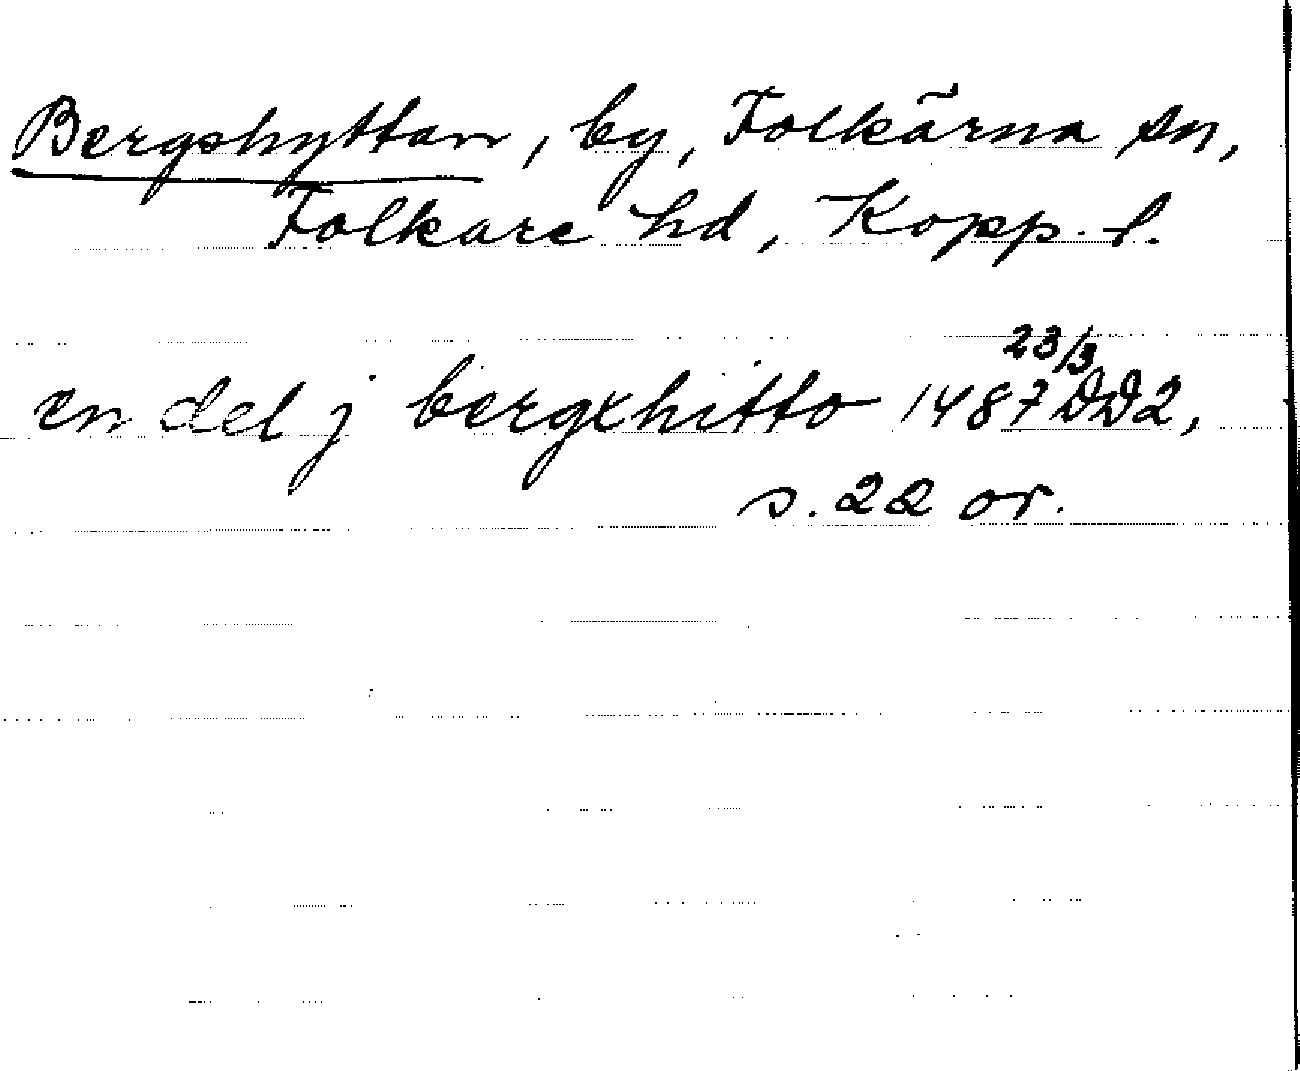 Bergshyttan, by, Folkärna sn,
Folkare hd, Kopp. l.
en del j bergxhitto 1487 23/3 DD2,
s. 22 or.